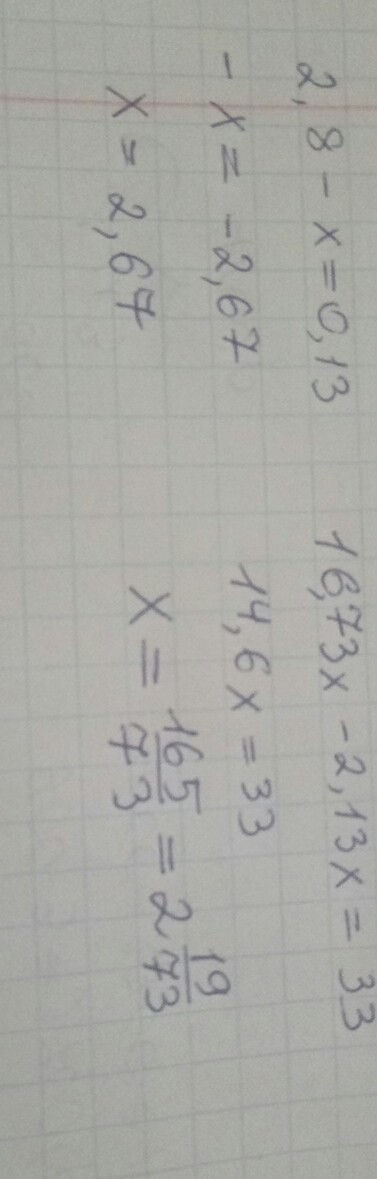 2,8 - x = 0,13
- x = -2,67
x = 2,67
16,73x - 2,13x = 33
14,6x = 33
x = 165/73 = 2 19/73